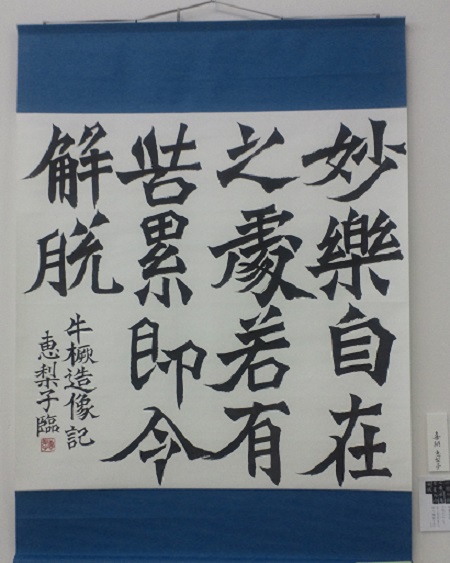 妙樂自在
之處若有
苦累即令
解脱
牛橛造像記
恵梨子臨